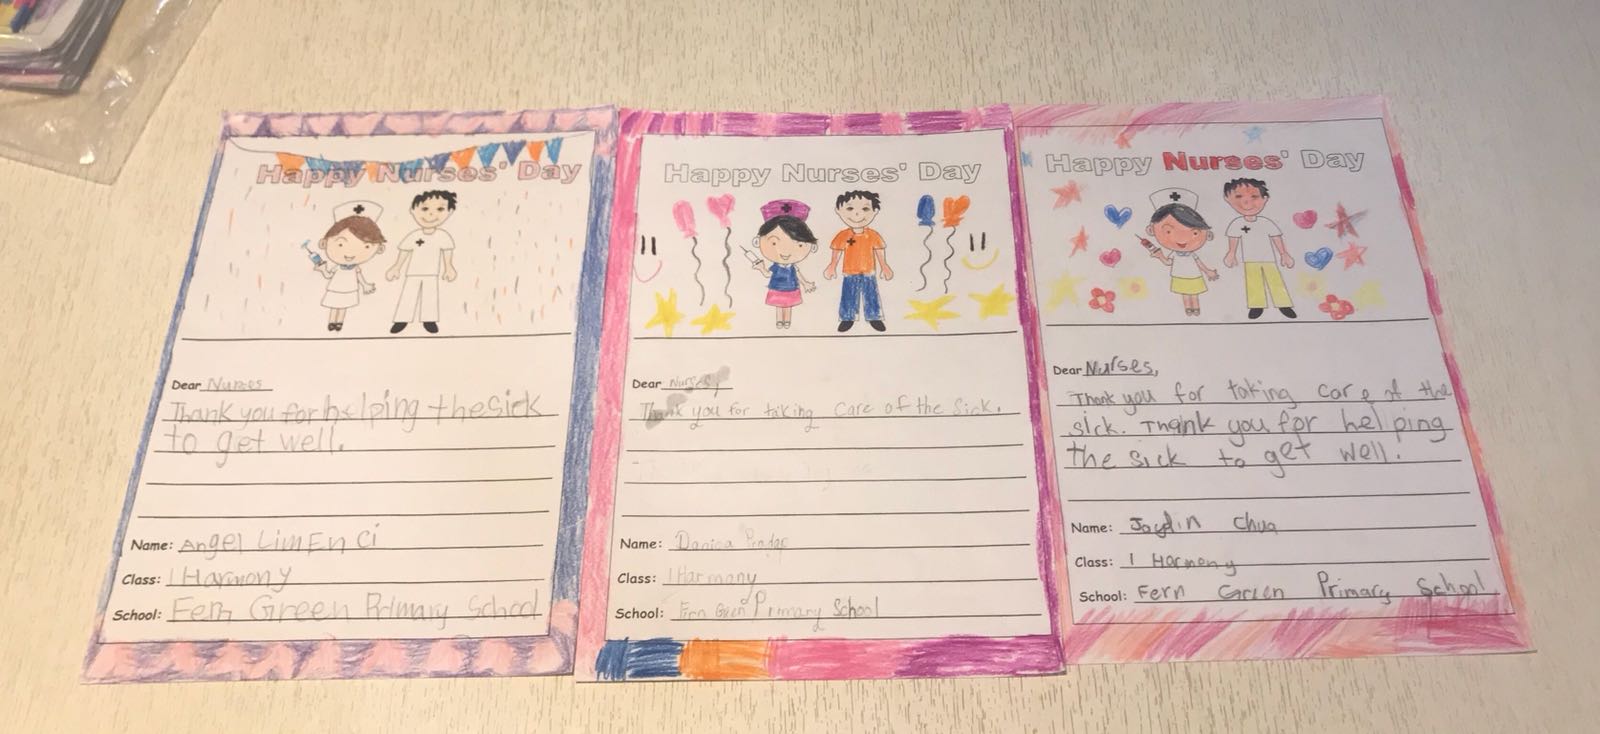 Happy Nurses' Day
Dear Nurses
Thank you for helping the sick
to get well.
Name: Angel Lim En Ci
Class: 1 Harmony
School: Fern Green Primary School
Happy Nurses' Day
Dear Nurses,
Thank you for taking care of the sick.
Name: Danica
Class: 1 Harmony
School: Fern Green Primary School
Happy Nurses' Day
Dear Nurses,
Thank you for taking care of the
sick. Thank you for helping
the sick to get well.
Name: Jaydin Chua
Class: 1 Harmony
School: Fern Green Primary School